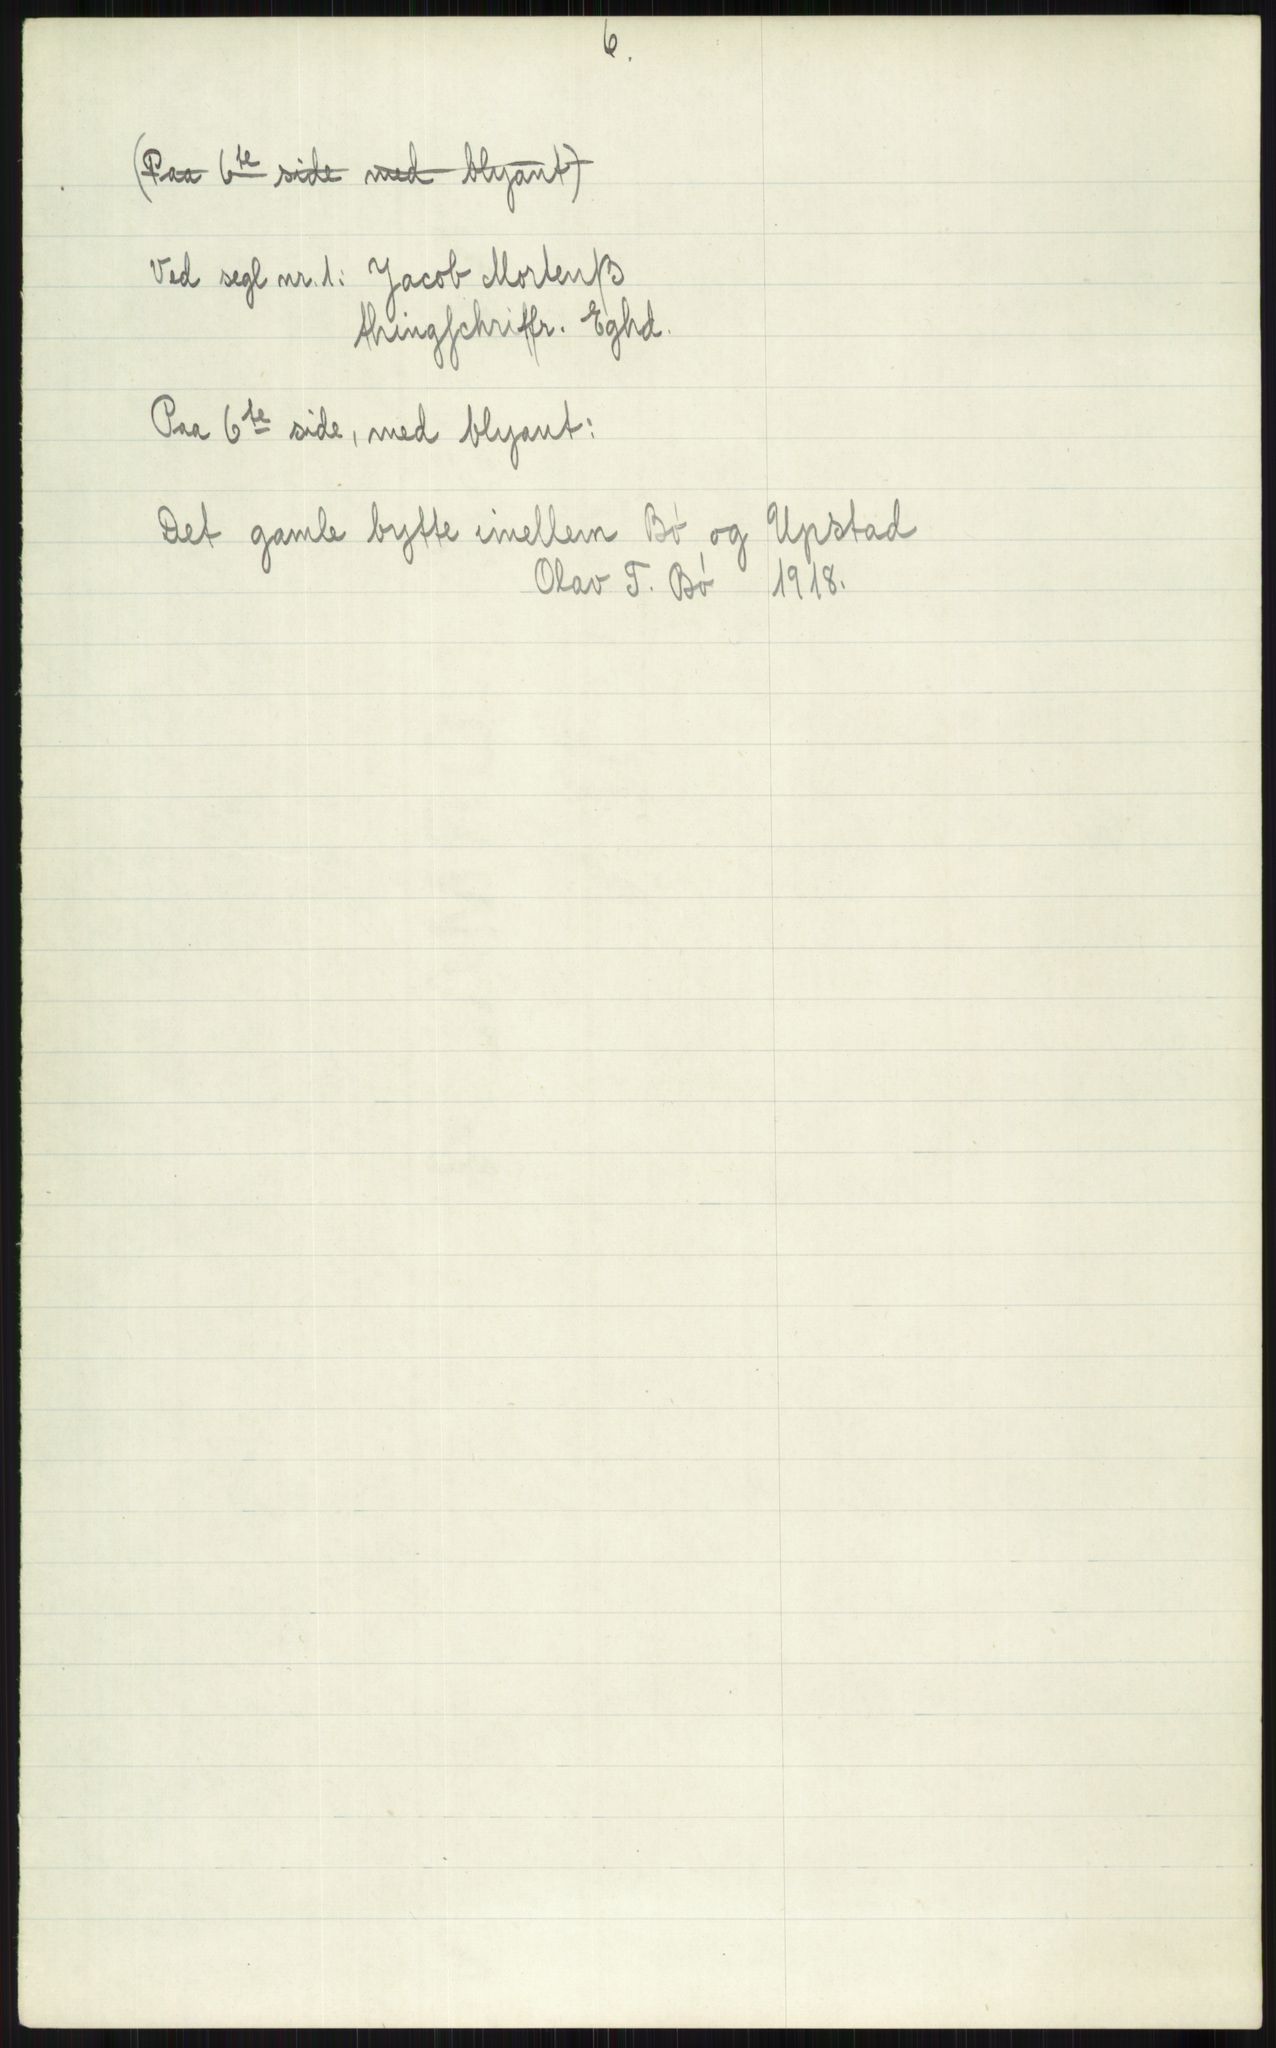 6.
(Paa 6te side med blyant)
Ved segl nr. 1: Jacob Mortenß
thingschriffr. Eghd.
Paa 6te side, med blyant:
Det gamle bytte imellem Bó og Upstad
Olav T. Bó 1918.